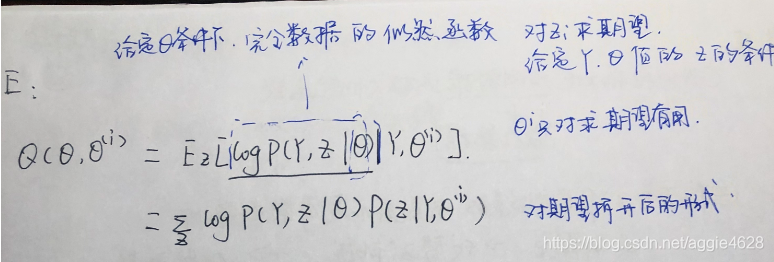 给定θ条件下.完全数据的似然函数
对Zi求期望.
给定Y.θ值的z的条件
E:
θⁱ只对求期望有用.
Q(θ,θ⁽ⁱ⁾) = E_Z[log P(Y,Z|θ)|Y,θ⁽ⁱ⁾].
= Σ_Z log P(Y,Z|θ)P(Z|Y,θ⁽ⁱ⁾)
对期望拆开后的形式.
https://blog.csdn.net/aggie4628